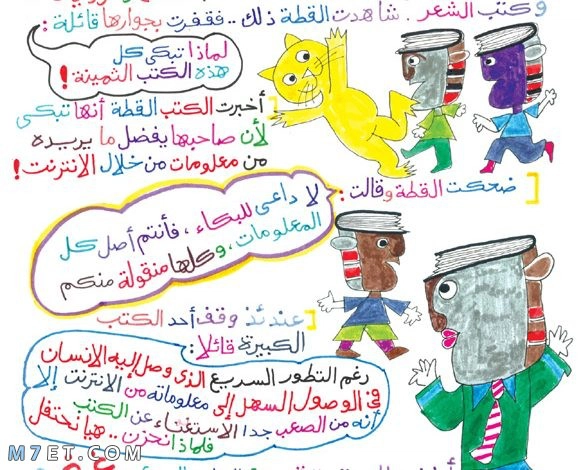 وكتب الشعر . شاهدت القطة ذلك .. فقفزت بجوارها قائلة :
لماذا تبكى كل
هذه الكتب الثمينة !
[ أخبرت الكتب القطة أنها تبكى
لأن صاحبها يفضل ما يريده
من معلومات من خلال الانترنت !
[ ضحكت القطة وقالت :
لا داعى للبكاء ، فأنتم أصل كل
المعلومات ، وكلها منقولة منكم
[ عندئذ وقف أحد الكتب
الكبيرة قائلا :
رغم التطور السريع الذى وصل إليه الانسان
فى الوصول السهل إلى معلوماته من الانترنت إلا
أنه من الصعب جدا الاستغناء عن الكتب
فلماذا نحزن .. هيا نحتفل
M7ET.COM